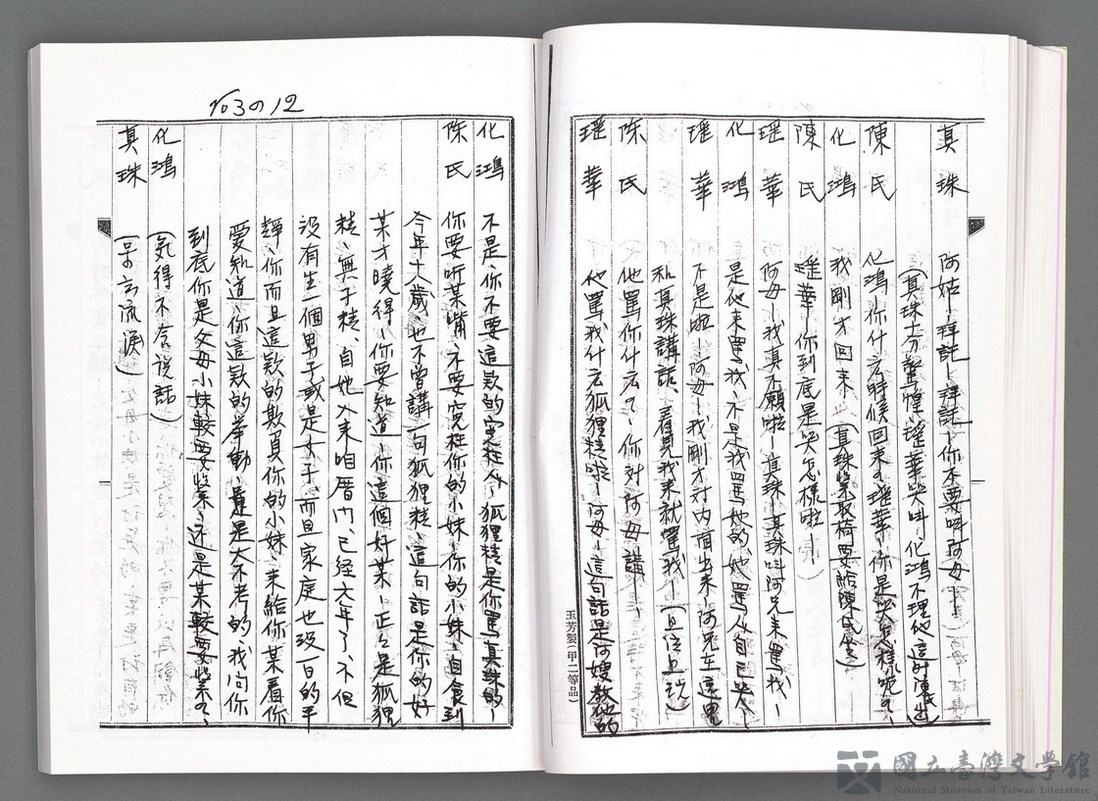 真珠 阿姑！拜託！拜託！你不要叫阿母
（真珠十分驚惶，瑤華哭叫，化鴻不理他這時陳氏出）
陳氏 化鴻！你什么時候回來？瑤華！你是哭怎樣呢？、
化鴻 我剛才回來（真珠緊取椅要給陳氏坐）
陳氏 瑤華！你到底是哭怎樣啦！
瑤華 阿母！我真不願啦！真珠！真珠叫阿兄來罵我！
化鴻 是他來罵我、不是我罵她的、她罵人自己哭！
瑤華 不是啦！阿母！我剛才對內面出來、阿兄在這里
和真珠講話、看見我來就罵我！
陳氏 他罵你什么？、你對阿母講！
瑤華 他罵我什么狐狸精啦！阿母！這句話是阿嫂教他的
玉芳製（甲二等品）
103の12
化鴻 不是、你不要這款的冤枉人！狐狸精是你罵真珠的！
陳氏 你要听某嘴、不要冤枉你的小妹！你的小妹！自食到
今年十八歲、也不曾講一句狐狸精、這句話是你的好
某才曉得！你要知道！你這個好某！正正是狐狸
精、無子精、自他入來咱厝內、已經六年了、不但
沒有生一個男子或是女子、而且家庭也沒一日的平
靜！你而且這款的欺負你的小妹、來給你某看你
要知道！你這款的舉動、是大不孝的、我问你
到底你是父母小妹較要紧、还是某較要紧？、
化鴻 （気得不會说話）
真珠 （呆立流淚）
國立臺灣文學館
National Museum of Taiwan Literature